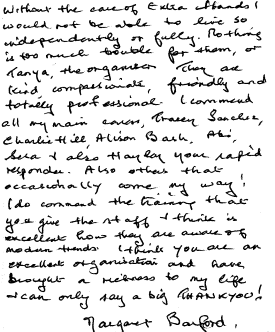 Without the care of Extra Hands I
would not be able to live so
independently or fully. Nothing
is too much trouble for them, or
Tanya, the organiser. They are
kind, compassionate, friendly and
totally professional. I commend
all my main carers, Tracey Sanchez,
Charlie Hill, Alison Bash, Abi,
Sera & also Hayley your rapid
responder. Also others that
occasionally come my way!
I do commend the training that
you give the staff & think is
excellent how they are aware of
modern trends. I think you are an
excellent organisation and have
brought a richness to my life
& can only say a big THANKYOU!
Margaret Banford.